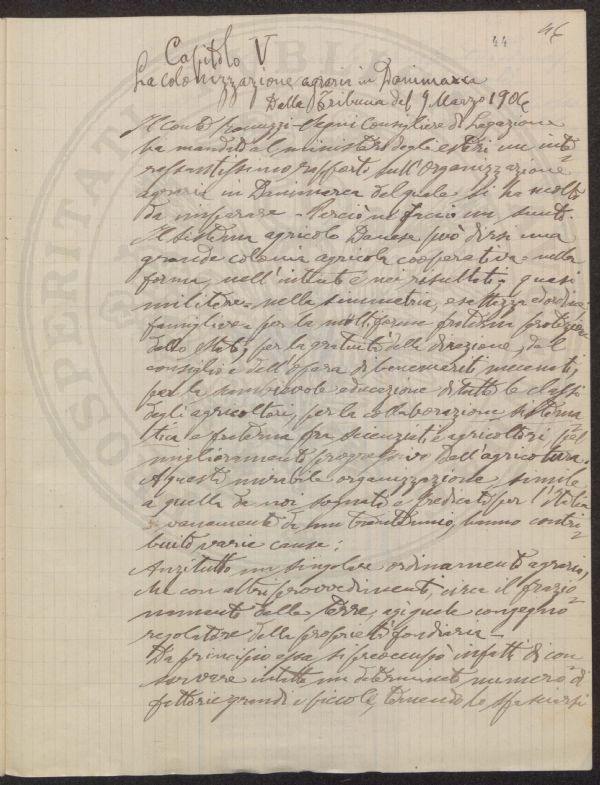 44
46
Capitolo V
La colonizzazione agraria in Danimarca
Dalla Tribuna del 9 Marzo 1906
Il conte Segni Consigliere di Legazione
ha mandato al ministro degli esteri un inte=
ressantissimo rapporto sull'organizzazione
agraria in Danimarca del quale si ha molto
da imparare - Perciò ne faccio un sunto.
Il sistema agricolo Danese può dirsi una
grande colonia agricola cooperativa = nella
forma, nell'intento e nei risultati = quasi
militare = nella simmetria, esattezza ed ordine
famigliare = per la multiforme fraterna protezione
dello Stato, per la gratuità della direzione, del
consiglio e dell'opera di benemeriti mecenati,
per la amorevole educazione di tutte le classi
degli agricoltori, per la collaborazione sistema
tica e fraterna fra scienziati e agricoltori pel
miglioramento progressivo dell'agricoltura.
A questa mirabile organizzazione, simile
a quella da noi sognata e predicata per l'Italia
vanamente da un trentennio, hanno contri=
buito varie cause:
Anzitutto un singolare ordinamento agrario,
che con altri provvedimenti, circa il frazio=
namento delle terre, agì quale congegno
regolatore della proprietà fondiaria -
Da principio esso si preoccupò infatti di con
servare intatte un determinato numero di
fattorie grandi e piccole, temendo lo sfasciarsi